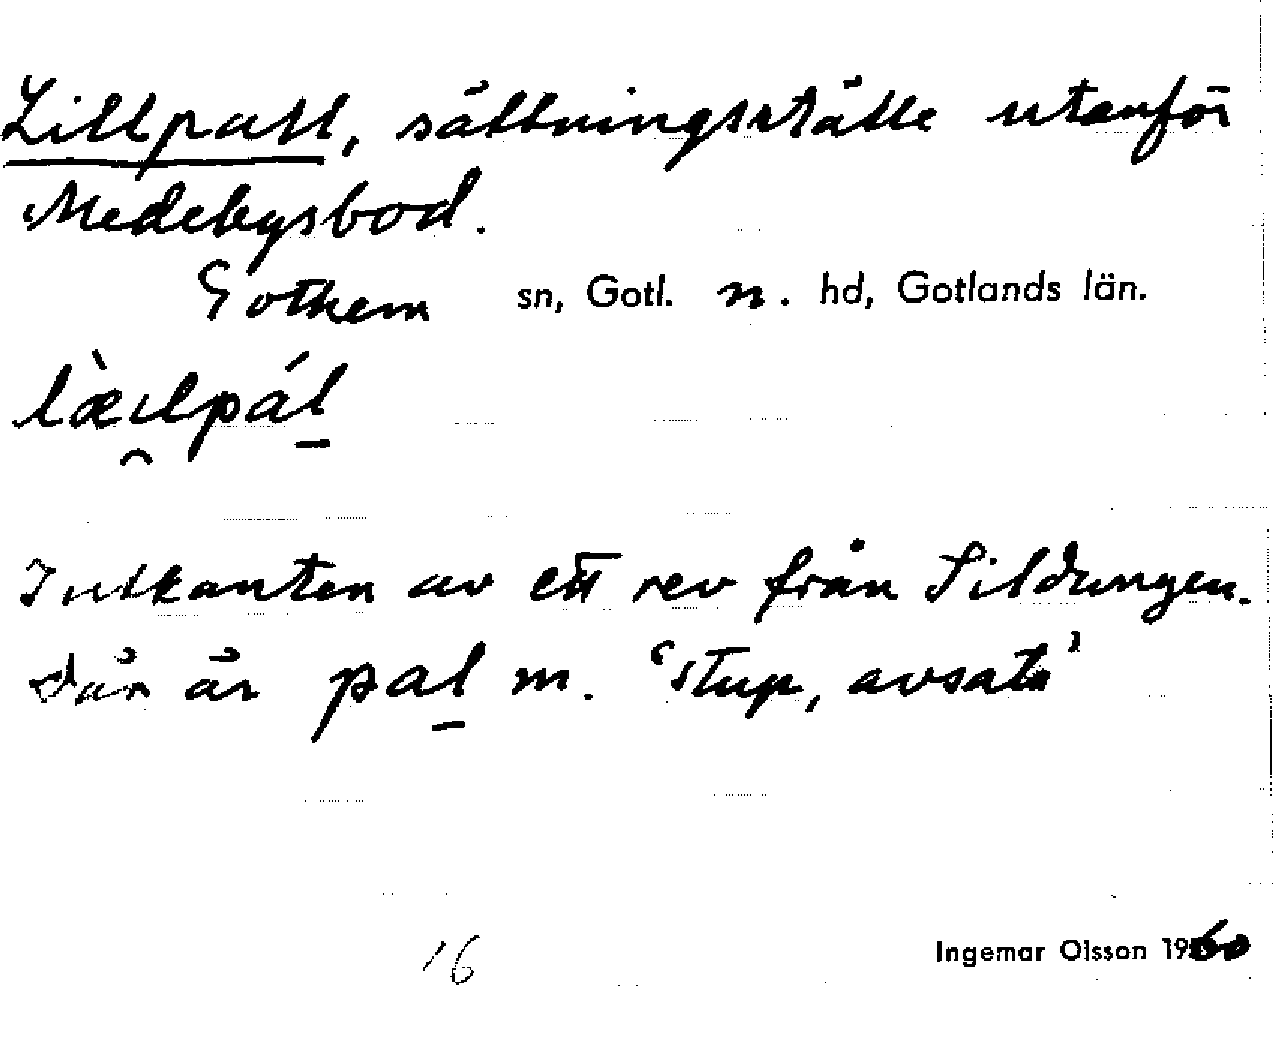 Lillpall, sättningsställe utanför
Medebysbod.
Gothem sn, Gotl. n. hd, Gotlands län.
lὰi̯lpál̠
Inkanten av ett rev från Sildungen.
Där är pal̠ m. 'stup, avsats'
16
Ingemar Olsson 1960